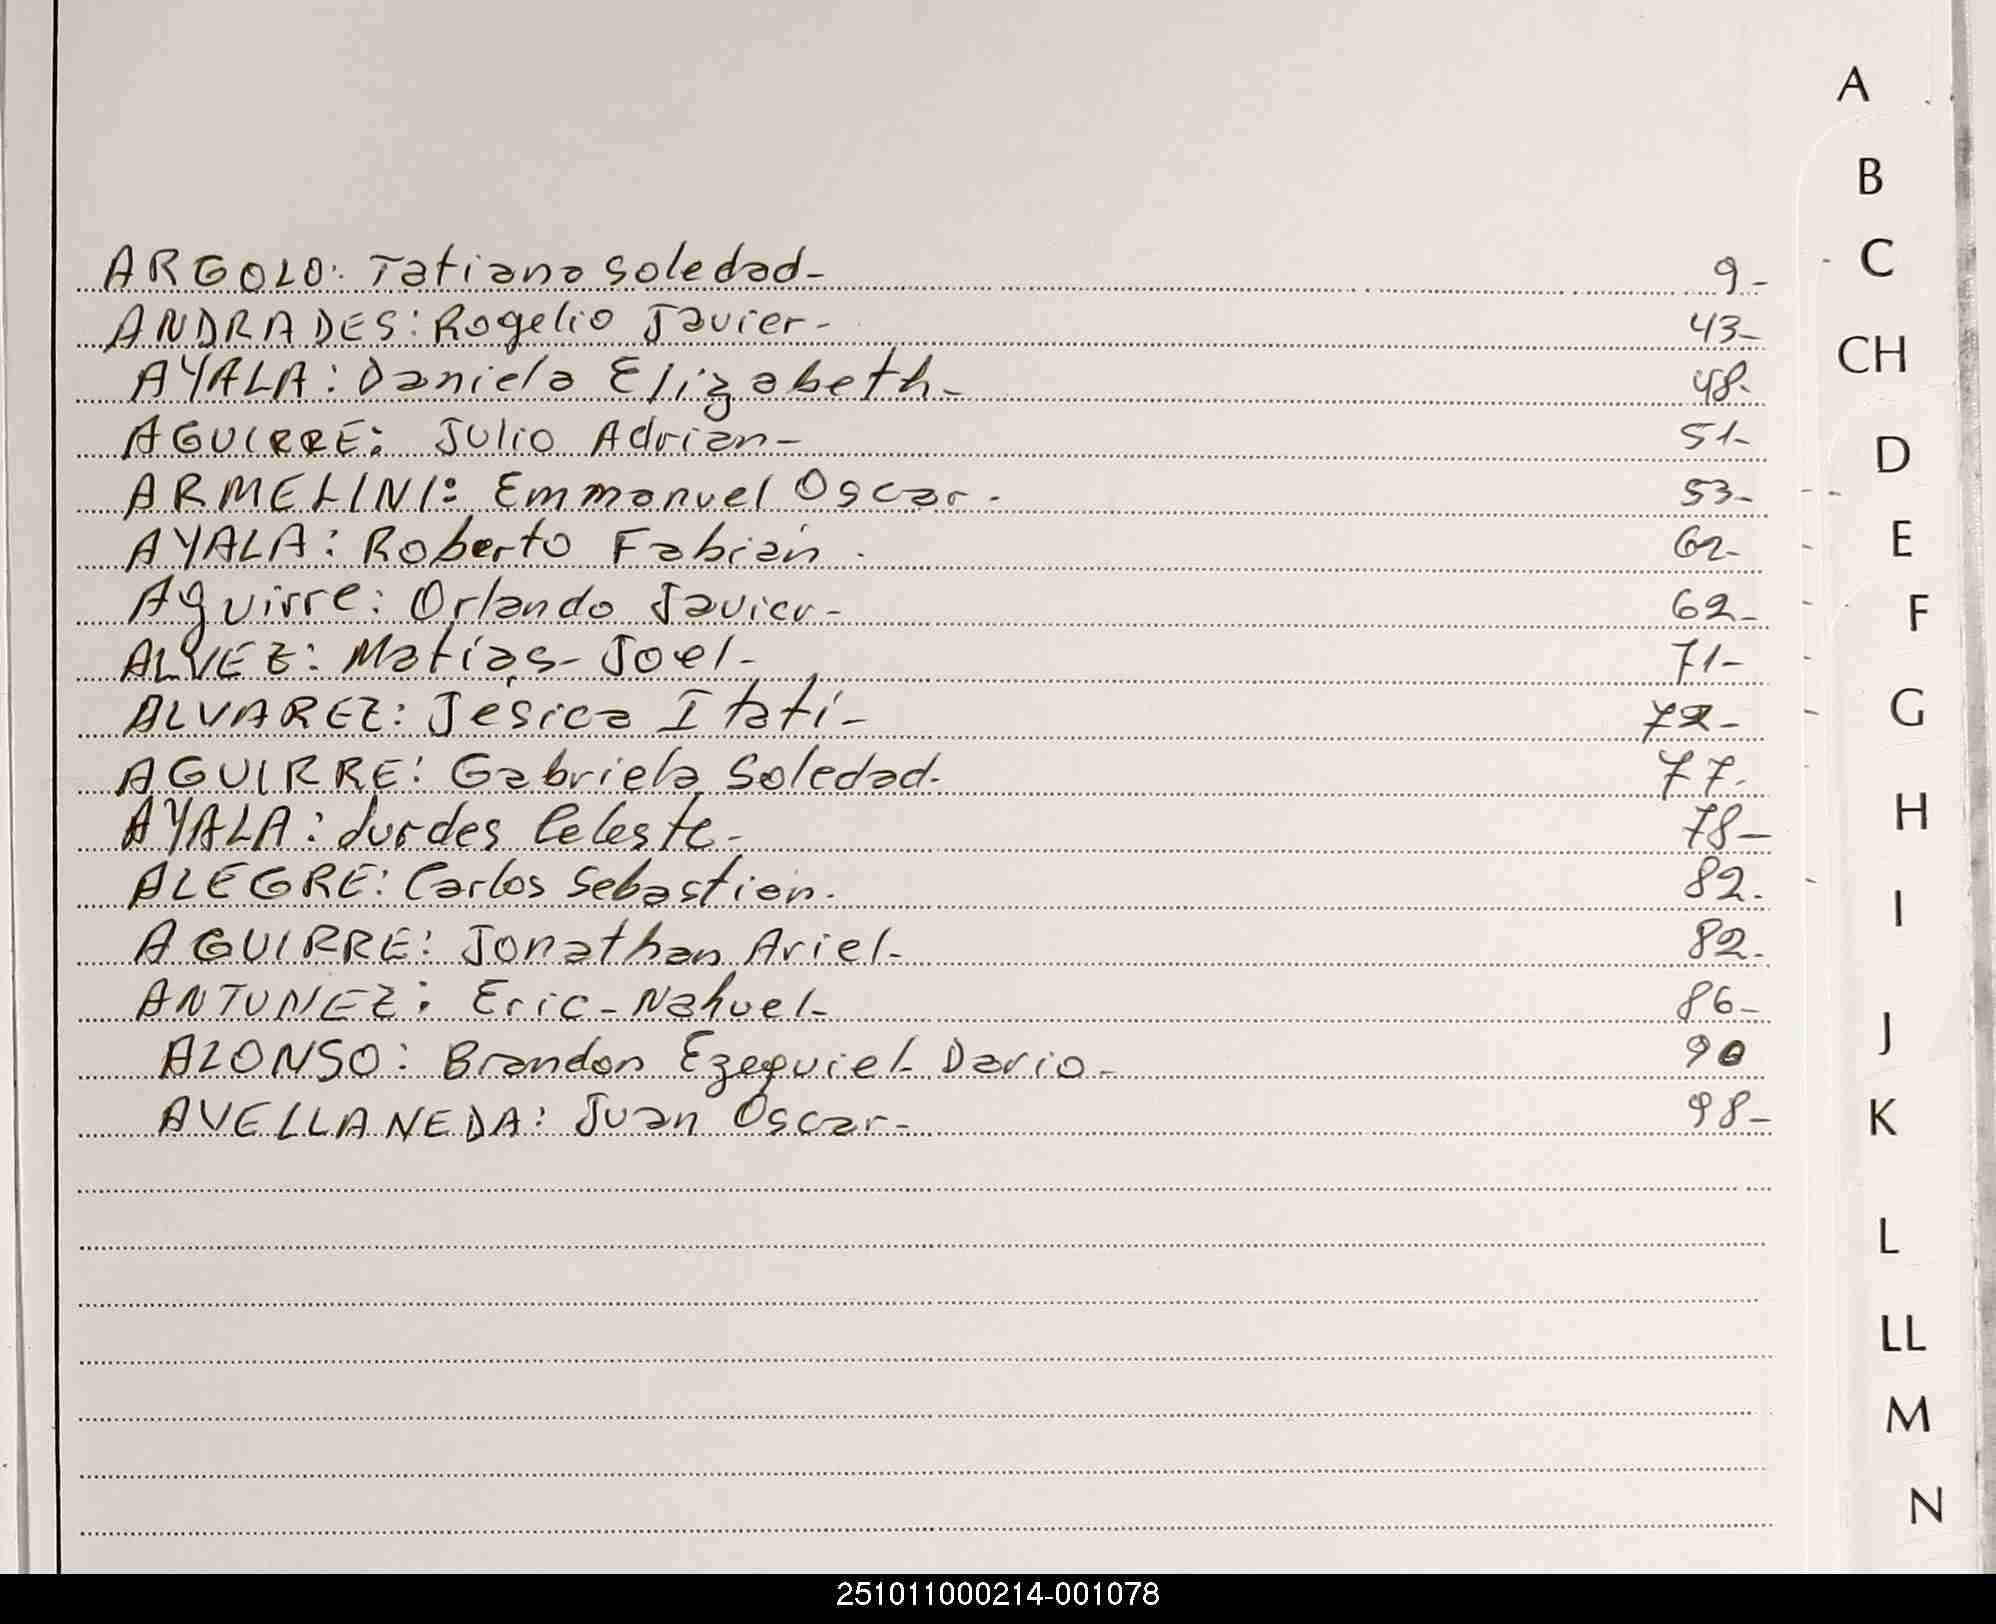 A
B
C
ARGOLO: Tatiana Soledad- 9-
ANDRADES: Rogelio Javier- 43-
CH
AYALA: Daniela Elizabeth- 48-
AGUIRRE: Julio Adrian- 51-
D
ARMELINI: Emmanuel Oscar- 53-
AYALA: Roberto Fabián. 62-
E
Aguirre: Orlando Javier- 62-
F
ALVEZ: Matías- Joel- 71-
ALVAREZ: Jésica Itatí- 72-
G
AGUIRRE: Gabriela Soledad- 77-
AYALA: Lurdes Celeste- 78-
H
ALEGRE: Carlos Sebastian. 82.
I
AGUIRRE: Jonathan Ariel- 82-
ANTUNEZ: Eric-Nahuel- 86-
J
ALONSO: Brandon Ezequiel Dario- 90
AVELLANEDA: Juan Oscar- 98-
K
L
LL
M
N
251011000214-001078